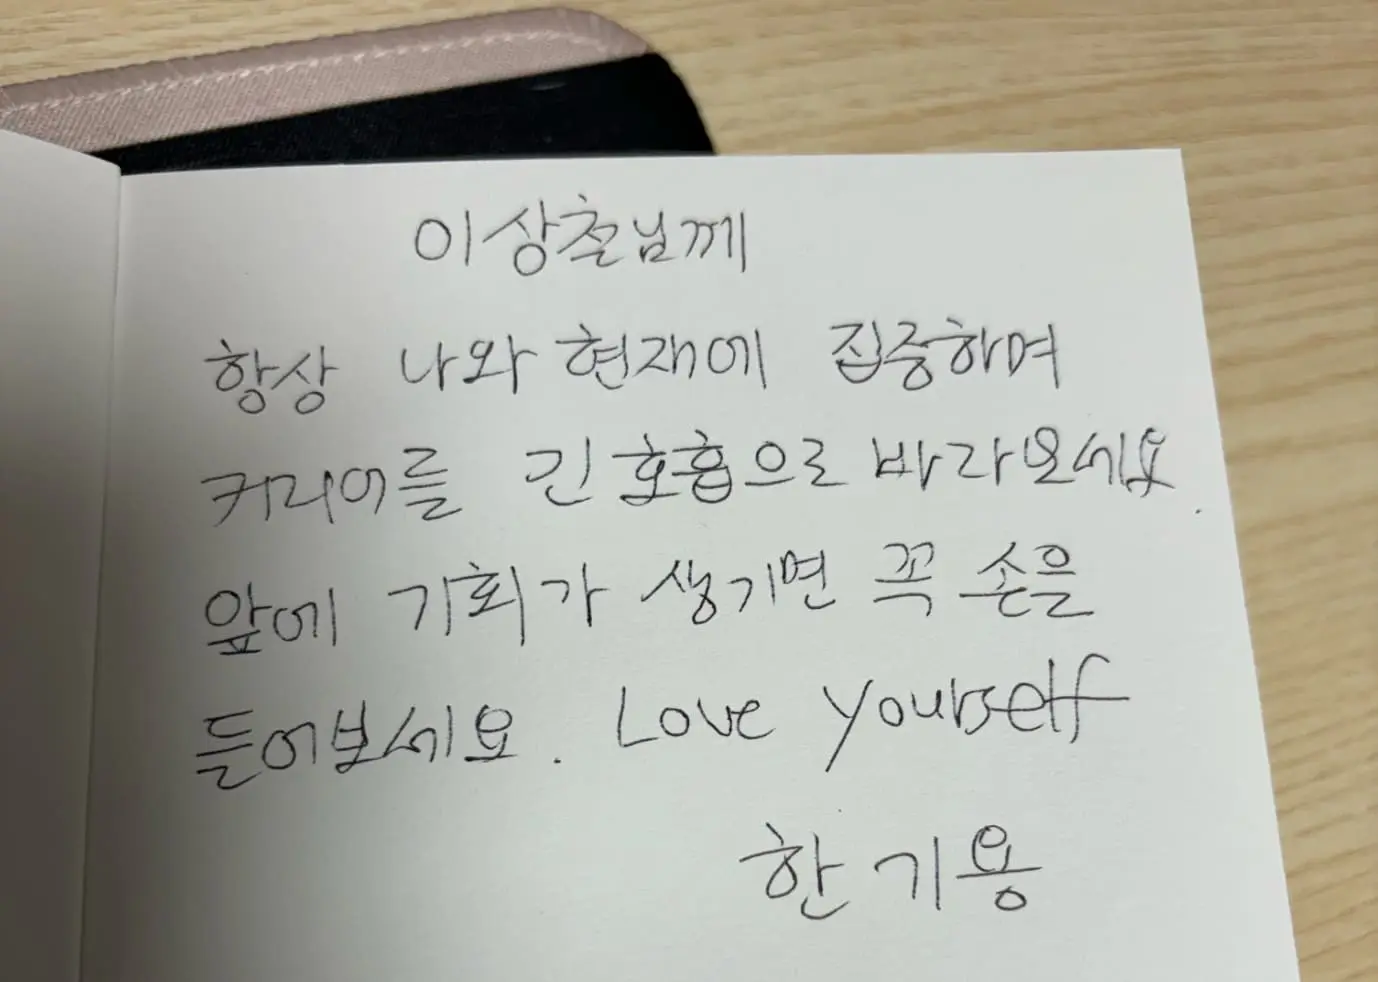 이상철님께
항상 나와 현재에 집중하며
커리어를 긴 호흡으로 바라보세요.
앞에 기회가 생기면 꼭 손을
들어보세요. Love yourself
한기용